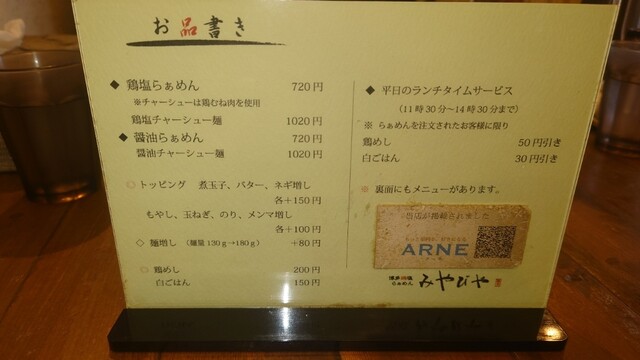 お品書き
◆ 鶏塩らぁめん 720円
※チャーシューは鶏むね肉を使用
鶏塩チャーシュー麺 1020円
◆ 醤油らぁめん 720円
醤油チャーシュー麺 1020円
◎ トッピング 煮玉子、バター、ネギ増し
各＋150円
もやし、玉ねぎ、のり、メンマ増し
各＋100円
◇ 麺増し (麺量130g→180g) ＋80円
◎ 鶏めし 200円
白ごはん 150円
◆ 平日のランチタイムサービス
(11時30分～14時30分まで)
※ らぁめんを注文されたお客様に限り
鶏めし 50円引き
白ごはん 30円引き
※ 裏面にもメニューがあります。
当店が掲載されました
ARNE
らぁめん みやびや